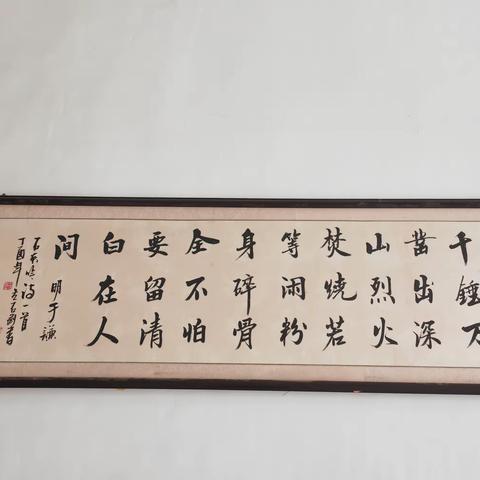 千錘万
凿出深
山烈火
焚烧若
等闲粉
身碎骨
全不怕
要留清
白在人
间 明于谦
石灰吟诗一首
丁酉年